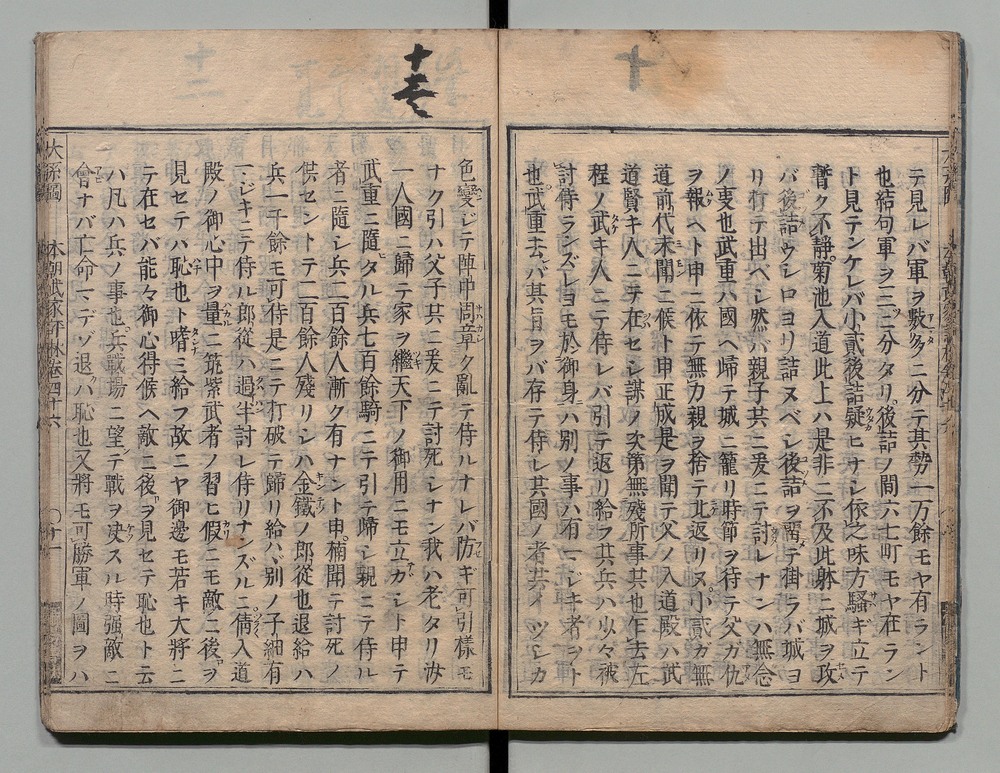 十
テ見レバ軍ヲ數多ニ分テ其勢一万餘モヤ有ラント
也結句軍ヲ二ニ分タリ後詰ノ間六七町モヤ在ラン
ト見テンケレバ小貳後詰疑ヒナシ依之味方騷キ立テ
暫ク不静菊池入道此上ハ是非ニ不及此躰ニ城ヲ攻
バ後詰ウシロヨリ詰ヌベシ後詰ヲ畱テ掛ラバ城ヨ
リ行テ出ヘシ然バ親子共ニ爰ニテ討レナンハ無念
ノ叓也武重ハ國ヘ歸テ城ニ籠リ時節ヲ待テ父ガ仇
ヲ報ヘト申ニ依テ無力親ヲ捨テ北返リヌ小貳ガ無
道前代末聞ニ候ト申正成是ヲ聞テ父ノ入道殿ハ武
道賢キ人ニテ在セシ謀ノ次第無殘所事共也乍去左
程ノ武キ人ニテ侍レバ引テ返リ給フ共兵ハ少々被
討侍ランズレヨモ於御身ハ別ノ事ハ有ージキ者ヲト
也武重去バ其旨ヲバ存テ侍レ其國ノ者共イツシカ
十壱
色變ジテ陣中周章ク亂テ侍ルナレバ防ギ可引樣モ
ナク引ハ父子共ニ爰ニテ討死シナン我ハ老タリ汝
一人國ニ歸テ家ヲ繼天下ノ御用ニモ立ガシト申テ
武重ニ隨ヒタル兵七百餘騎ニテ引テ歸シ親ニテ侍ル
者ニ隨シ兵二百餘人漸ク有ナント申楠聞テ討死ノ
供セントテ二百餘人殘リシハ金鐵ノ郎從也退給ハ
兵一千餘モ可侍是ニテ打破テ歸リ給ハバ別ノ子細有
ージキニテ侍ル郎從ハ過半討レ侍リナンズルニ倩入道
殿ノ御心中ヲ量ニ筑紫武者ノ習ヒ假ニモ敵ニ後ヲ
見セテハ恥也ト嗜ミ給フ故ニヤ御邊モ若キ大將ニ
テ在セバ能々御心得候ヘ敵ニ後ヲ見セテ恥也ト云
ハ凡ハ兵ノ事也兵戰場ニ望テ戰ヲ决スル時强敵ニ
會ナバ亡命ーデゾ退ハ恥也又將モ可勝軍ノ圖ヲハ
本朝武家評林卷四十六
〇十一